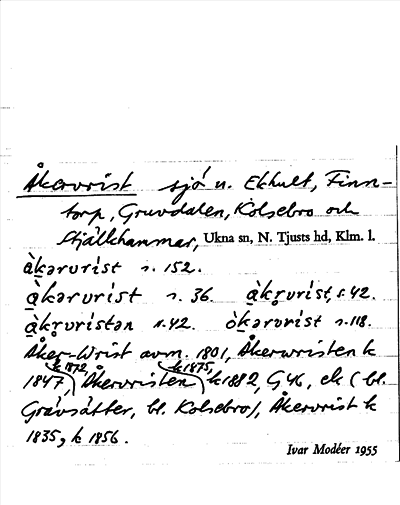 Åkervrist sjö u. Ekhult, Finn-
torp, Gruvdalen, Kolsebro och
Stjälkhammar, Ukna sn, N. Tjusts hd, Klm. l.
àkərvrist s. 152.
àkərvrist s. 36. àkr̥vrist, s. 42.
àkr̥vristən s. 42. òkərvrist s. 118.
Åker-Wrist avm. 1801, Åkerwristen k
k 1872, k 1875,
1847, Åkervristen k 1882, G 46, ek (bl.
Grävsätter, bl. Kolsebro), Åkervrist k
1835, k 1856.
Ivar Modéer 1955